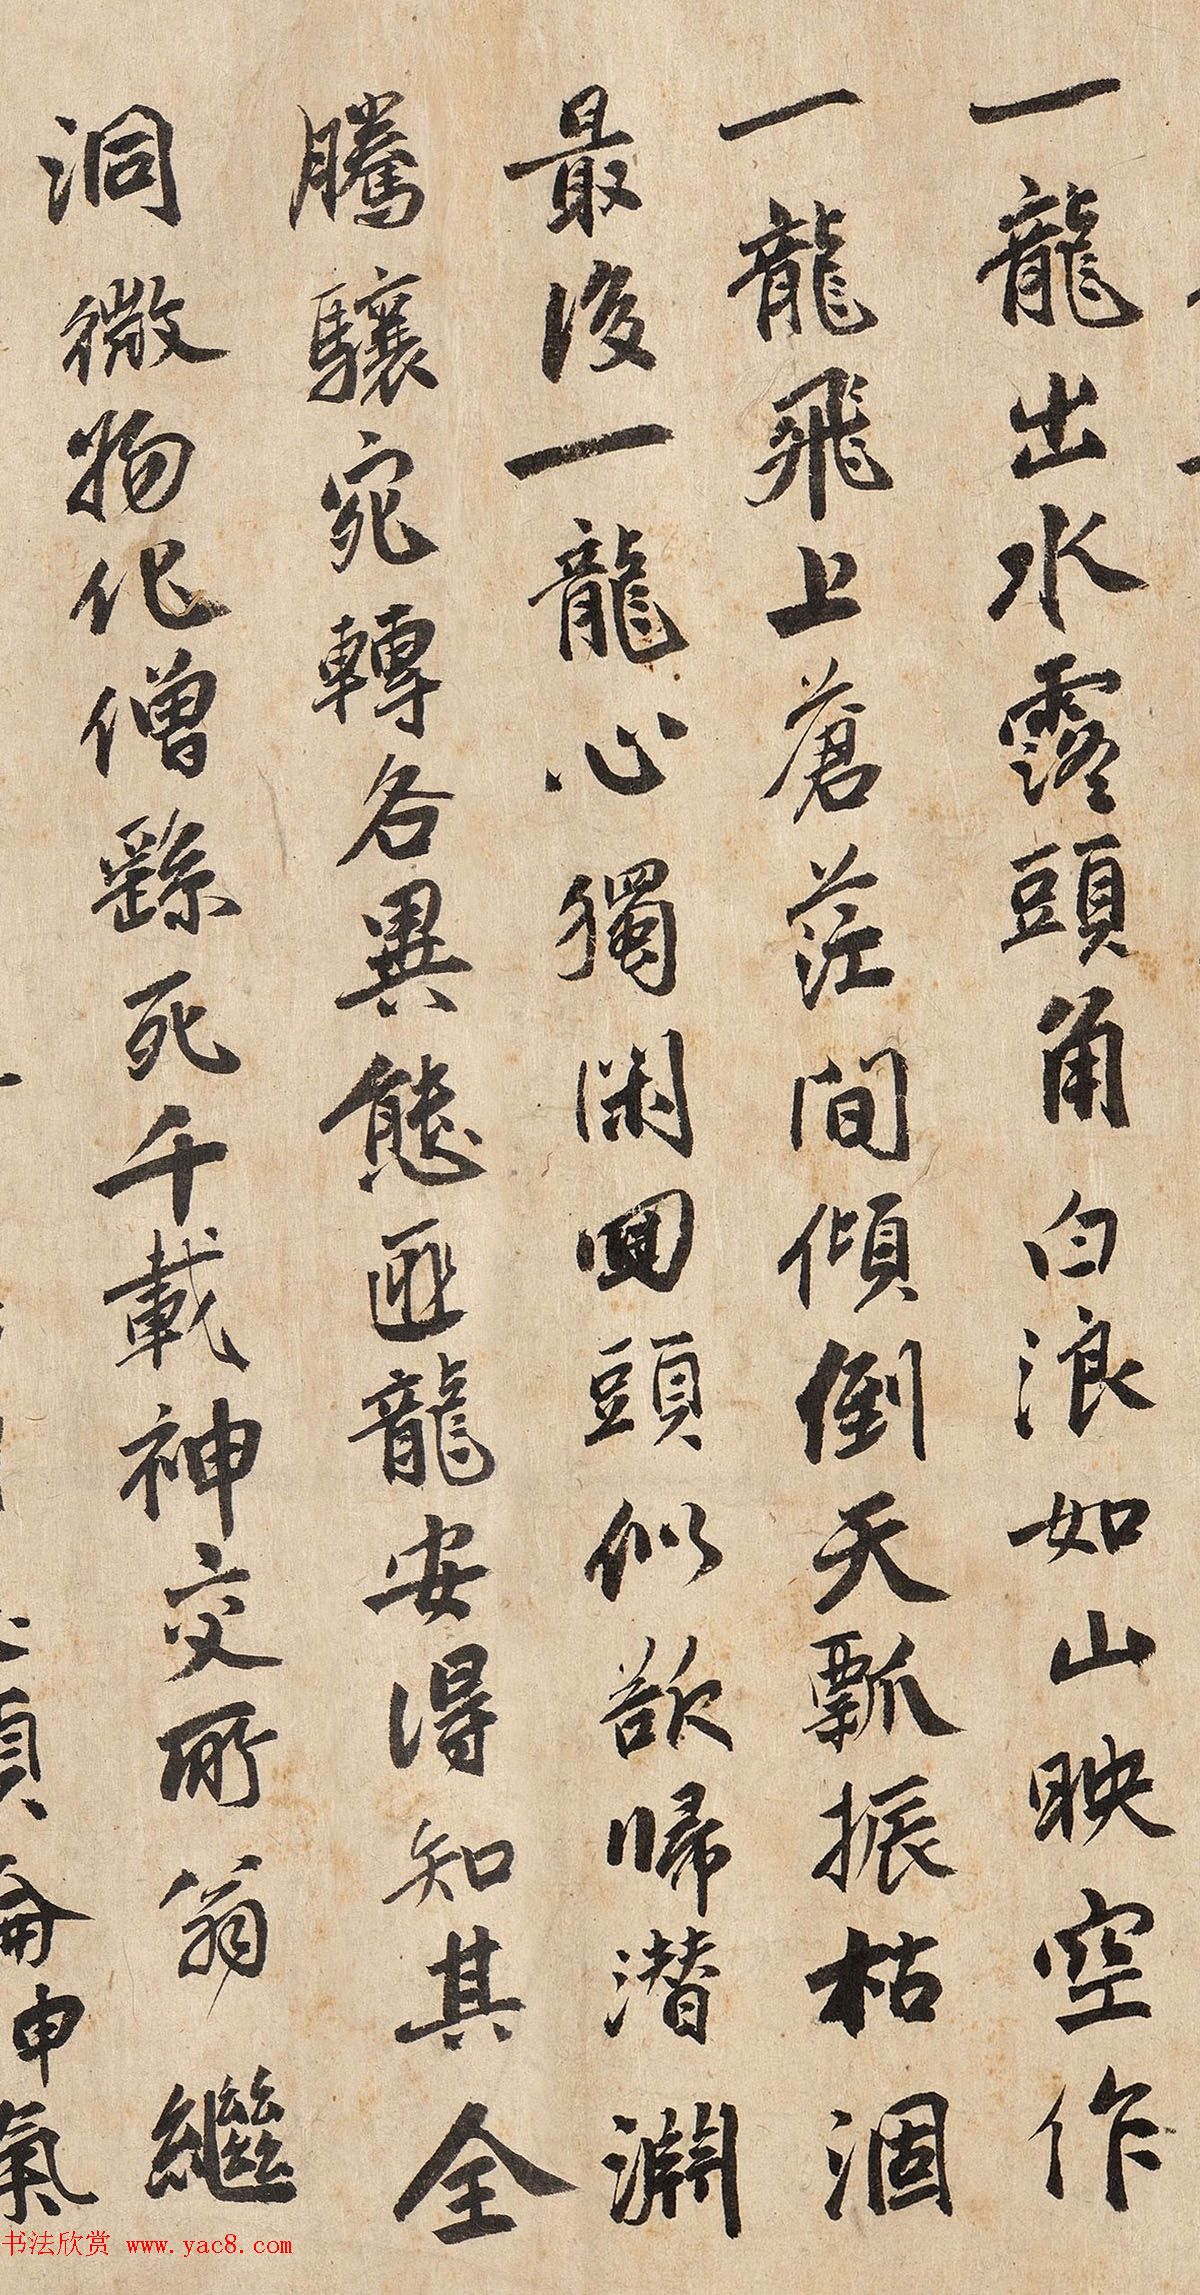 一龍出水露頭角白浪如山映空作
一龍飛上蒼茫間傾倒天瓢振枯涸
最後一龍心獨閑回頭似欲歸潛淵
騰驤宛轉各異態匪龍安得知其全
洞微物化僧繇死千載神交所翁繼
申氣
书法欣赏 www.yac8.com